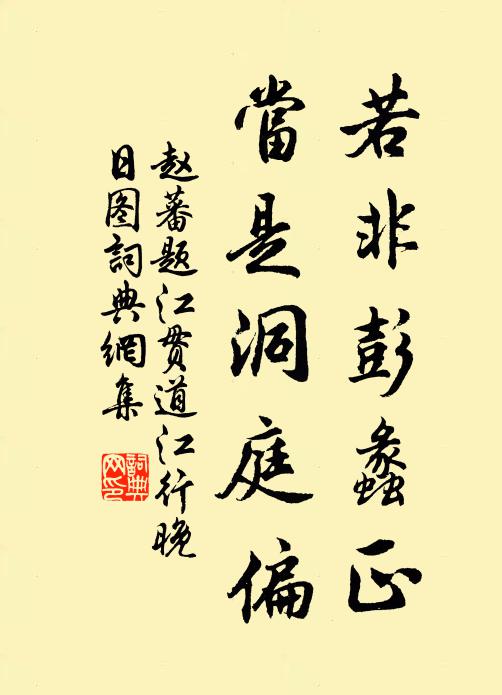 若非彭蠡正
當是洞庭偏
赵蕃题江贯道江行晚
日图詞典網集
詞典
网印